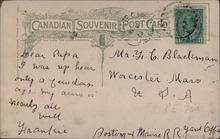 CANADIAN SOUVENIR POST CARD
Dear Papa
I was up hear
only a few days
ago. my arm is
nearly all
well
Mr. C. Blackman
Worcester Mass
U S A
Boston & Maine R.R yard office